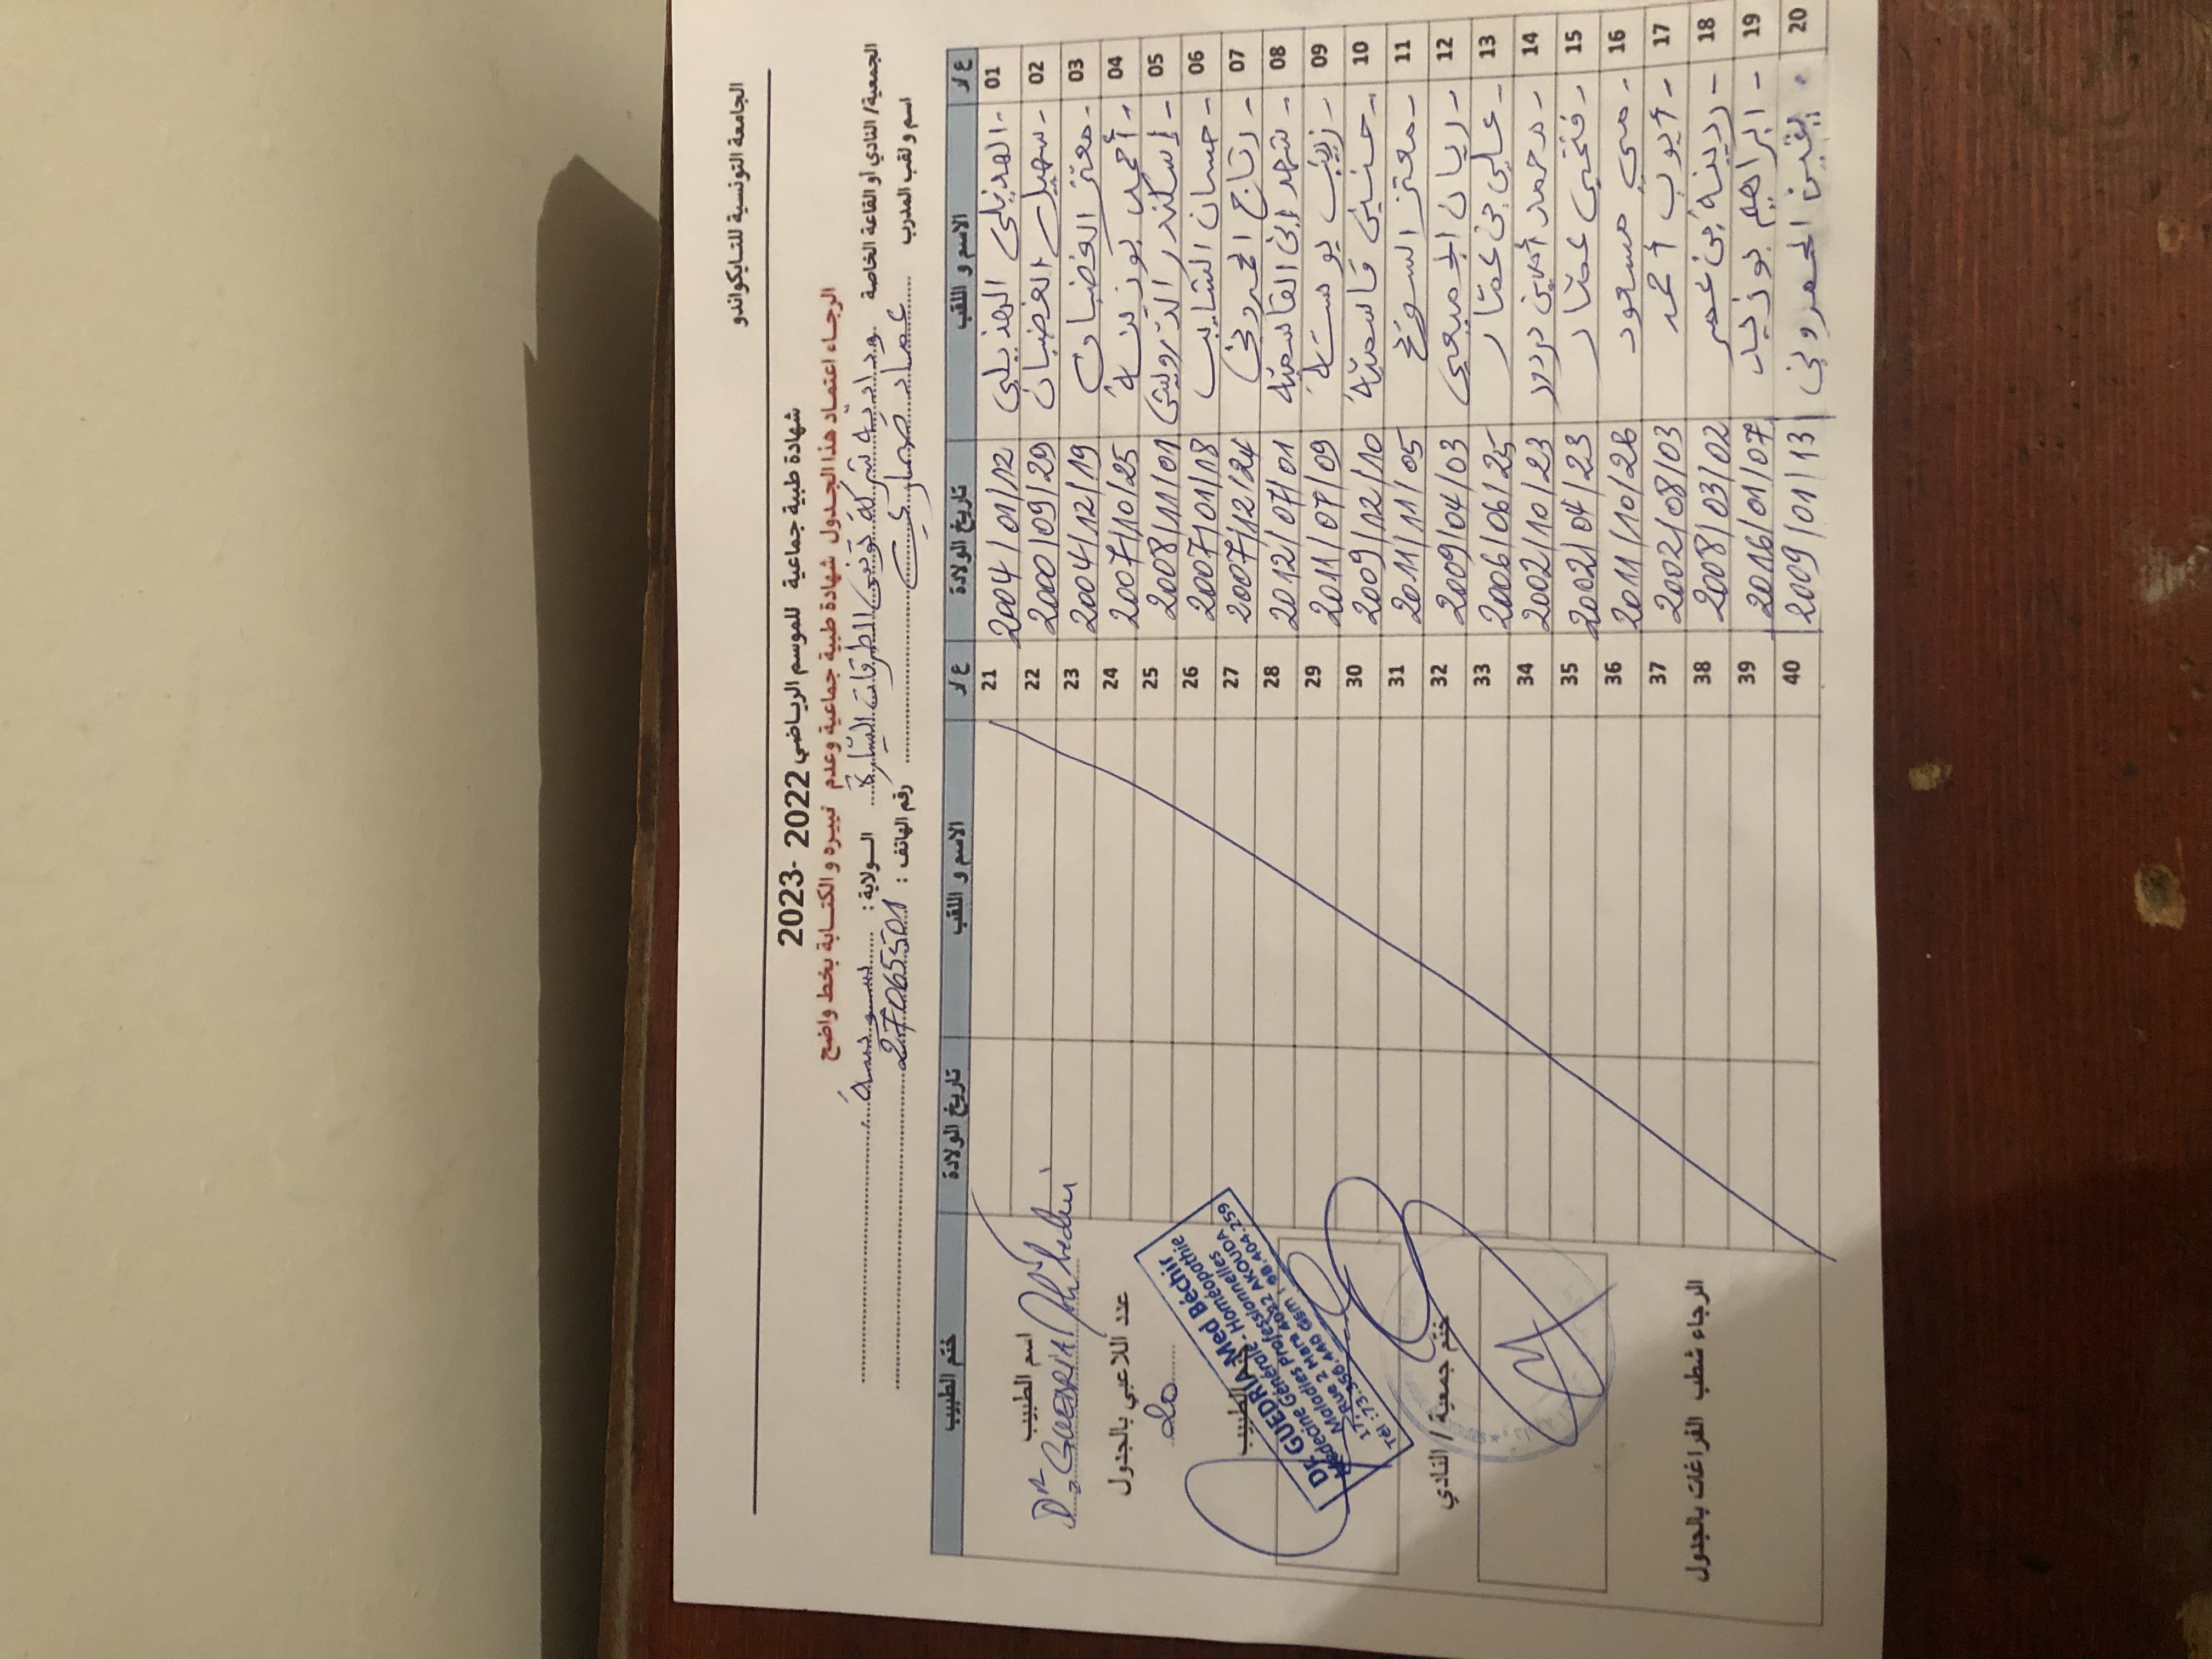 الجامعة التونسية للتايكواندو
شهادة طبية جماعية للموسم الرياضي 2022 -2023
الرجاء اعتماد هذا الجدول شهادة طبية جماعية وعدم تغييره و الكتابة بخط واضح
الجمعية/ النادي أو القاعة الخاصة الولاية : سوسة
اسم و لقب المدرب عماد رقم الهاتف : 27065501
ع / ر الاسم و اللقب تاريخ الولادة ع / ر الاسم و اللقب تاريخ الولادة ختم الطبيب
01 - الهذيلي الهذيلي 2004/01/12 21
02 - سهيل الغضبان 2000/09/29 22
03 - معتز الغضبان 2004/12/19 23
04 - أحمد بوزنينة 2007/10/25 24
05 - إسكندر الدرويش 2008/11/01 25
06 - حسان الشايب 2007/01/18 26
07 - رتاج الحمروني 2007/12/24 27
08 - شهد القاسمية 2012/07/01 28
09 - زينب بوستة 2011/07/09 29
10 - حنين قاسمية 2009/12/10 30
11 - معتز السويح 2011/11/05 31
12 - ريان الجميعي 2009/04/03 32
13 - علي بن عمار 2006/06/25 33
14 - محمد أمين دردور 2002/10/23 34
15 - فتحي عمار 2002/04/23 35
16 - مي مسعود 2011/10/26 36
17 - أيوب أحمد 2002/08/03 37
18 - بن عمر 2008/03/02 38
19 - ابراهيم بوزيد 2016/01/07 39
20 يقين الحمروني 2009/01/13 40
اسم الطبيب
Dr GUEDRIA
عدد اللاعبي بالجدول
20
الطبيب
Dr. GUEDRIA Med Béchir
Médecine Générale - Homéopathie
Maladies Professionnelles
17, Rue 2 Mars 4022 AKOUDA
Tél :73.356.440 Gsm : 98.404.259
ختم جمعية / النادي
الرجاء شطب الفراغات بالجدول